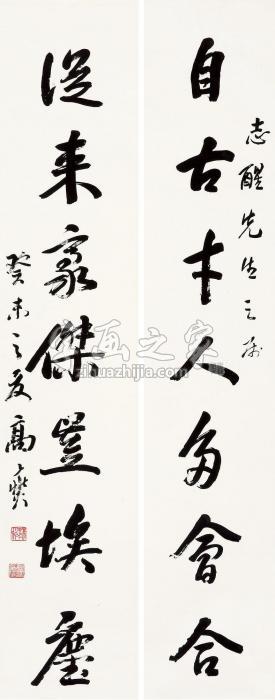 志醒先生之属
自古才人多會合
從来豪傑豈埃塵
癸未之夏高燮
字画之家
zihuazhijia.com